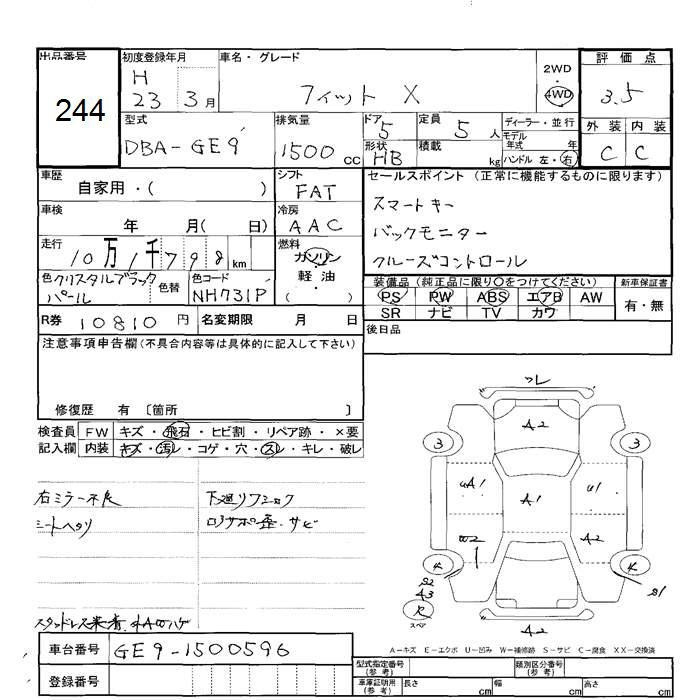 出品番号
244
初度登録年月
H
23 3月
車名・グレード
フィット X
2WD
4WD
評価点
3.5
型式
DBA-GE9
排気量
1500 cc
ドア
5
形状
HB
定員
5 人
積載
kg
ディーラー・並行
モデル
年式 年
ハンドル 左・右
外装 内装
C C
車歴
自家用・( )
シフト
FAT
セールスポイント (正常に機能するものに限ります)
スマートキー
バックモニター
クルーズコントロール
車検
年 月( 日)
冷房
AAC
走行
10万1千798km
燃料
ガソリン
軽油
( )
色 クリスタルブラック
パール
色替
色コード
NH731P
装備品 (純正品に限り○をつけてください)
PS PW ABS エアB AW
SR ナビ TV カワ
新車保証書
有・無
R券 10810 円
名変期限 月 日
後日品
注意事項申告欄(不具合内容等は具体的に記入して下さい)
修復歴 有 〔箇所 〕
検査員
記入欄
FW キズ・飛石・ヒビ割・リペア跡・×要
内装 キズ・汚れ・コゲ・穴・スレ・キレ・破レ
右ミラー不良
シートヘタリ
ロアサポ歪・サビ
ズレ
A2
3
3
UA1
A1
U1
W2
A2
4
4
S2
A3
S1
R
スペア
A2
A-キズ E-エクボ U-凹み W-補修跡 S-サビ C-腐食 XX-交換済
車台番号 GE9-1500596
登録番号
型式指定番号
(参考)
類別区分番号
(参考)
車庫証明用
(参考)
長さ cm
幅 cm
高さ cm